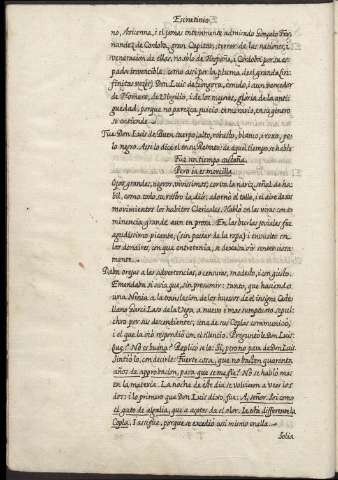 Escrutinio
no, Avicenna, i el jamas enteramente admirado Gonçalo Fer-
nandez de Cordova, gran Capitan, terror de las naciones, i
veneracion de ellas, nacio de España, i Cordova por su es-
pada invencible, como assi por la pluma, de el grande (in-
finitas vezes) Don Luis de Gongora, emulo, i aun vencedor
de Homero, de Virgilio, i de los mayores, gloria de la anti-
guedad, porque no parezca juicio temerario, en su genero
se entiende.
Fue Don Luis de buen cuerpo, alto, robusto, blanco, i roxo, pe-
lo negro. Assi lo dize el en su Romance: de aquel tiempo se hable
Fue un tiempo castaña,
Pero ia es morcilla.
Ojos grandes, negros, vivissimos, corva la nariz, señal de ha-
bil, como todo su rostro la dio: adornò el talle, i el aire de sus
movimientos los habitos Clericales. Hablò en las veras con e-
minencia grande aun en prosa. En las burlas joviales fue
agudissimo picante, (sin passar de la ropa) i entretenido con
los donaires, con que entretenia, se dexava oir convenientissima-
mente.
Daba orejas a las advertencias, o censuras, modesto, i con gusto.
Emendaba si avia que, sin presumir: tanto, que haciendo
una Nenia a la translacion de los huesos de el insigne Caste-
llano Garci Laso de la Vega, a nuevo i mas sumptuoso sepul-
chro por sus descendientes, una de sus Coplas comunicò,
i el que la oiò respondiò con el silencio. Preguntòle Don Luis:
Que? No es buena? Replicòle: Si, pero no para de Don Luis.
Sintiòlo, con decirle: Fuerte cosa, que no basten quarenta
años de aprobacion, para que se me fie! No se hablò mas
en la materia. La noche de este dia se volvieron a ver los
dos: i lo primero que Don Luis dixo, fue: A, señor. Soi como
el gato de algalia, que a açotes da el olor. Ia està differente la
Copla. I assi fue, porque se excedio asi mismo en ella.
Solia